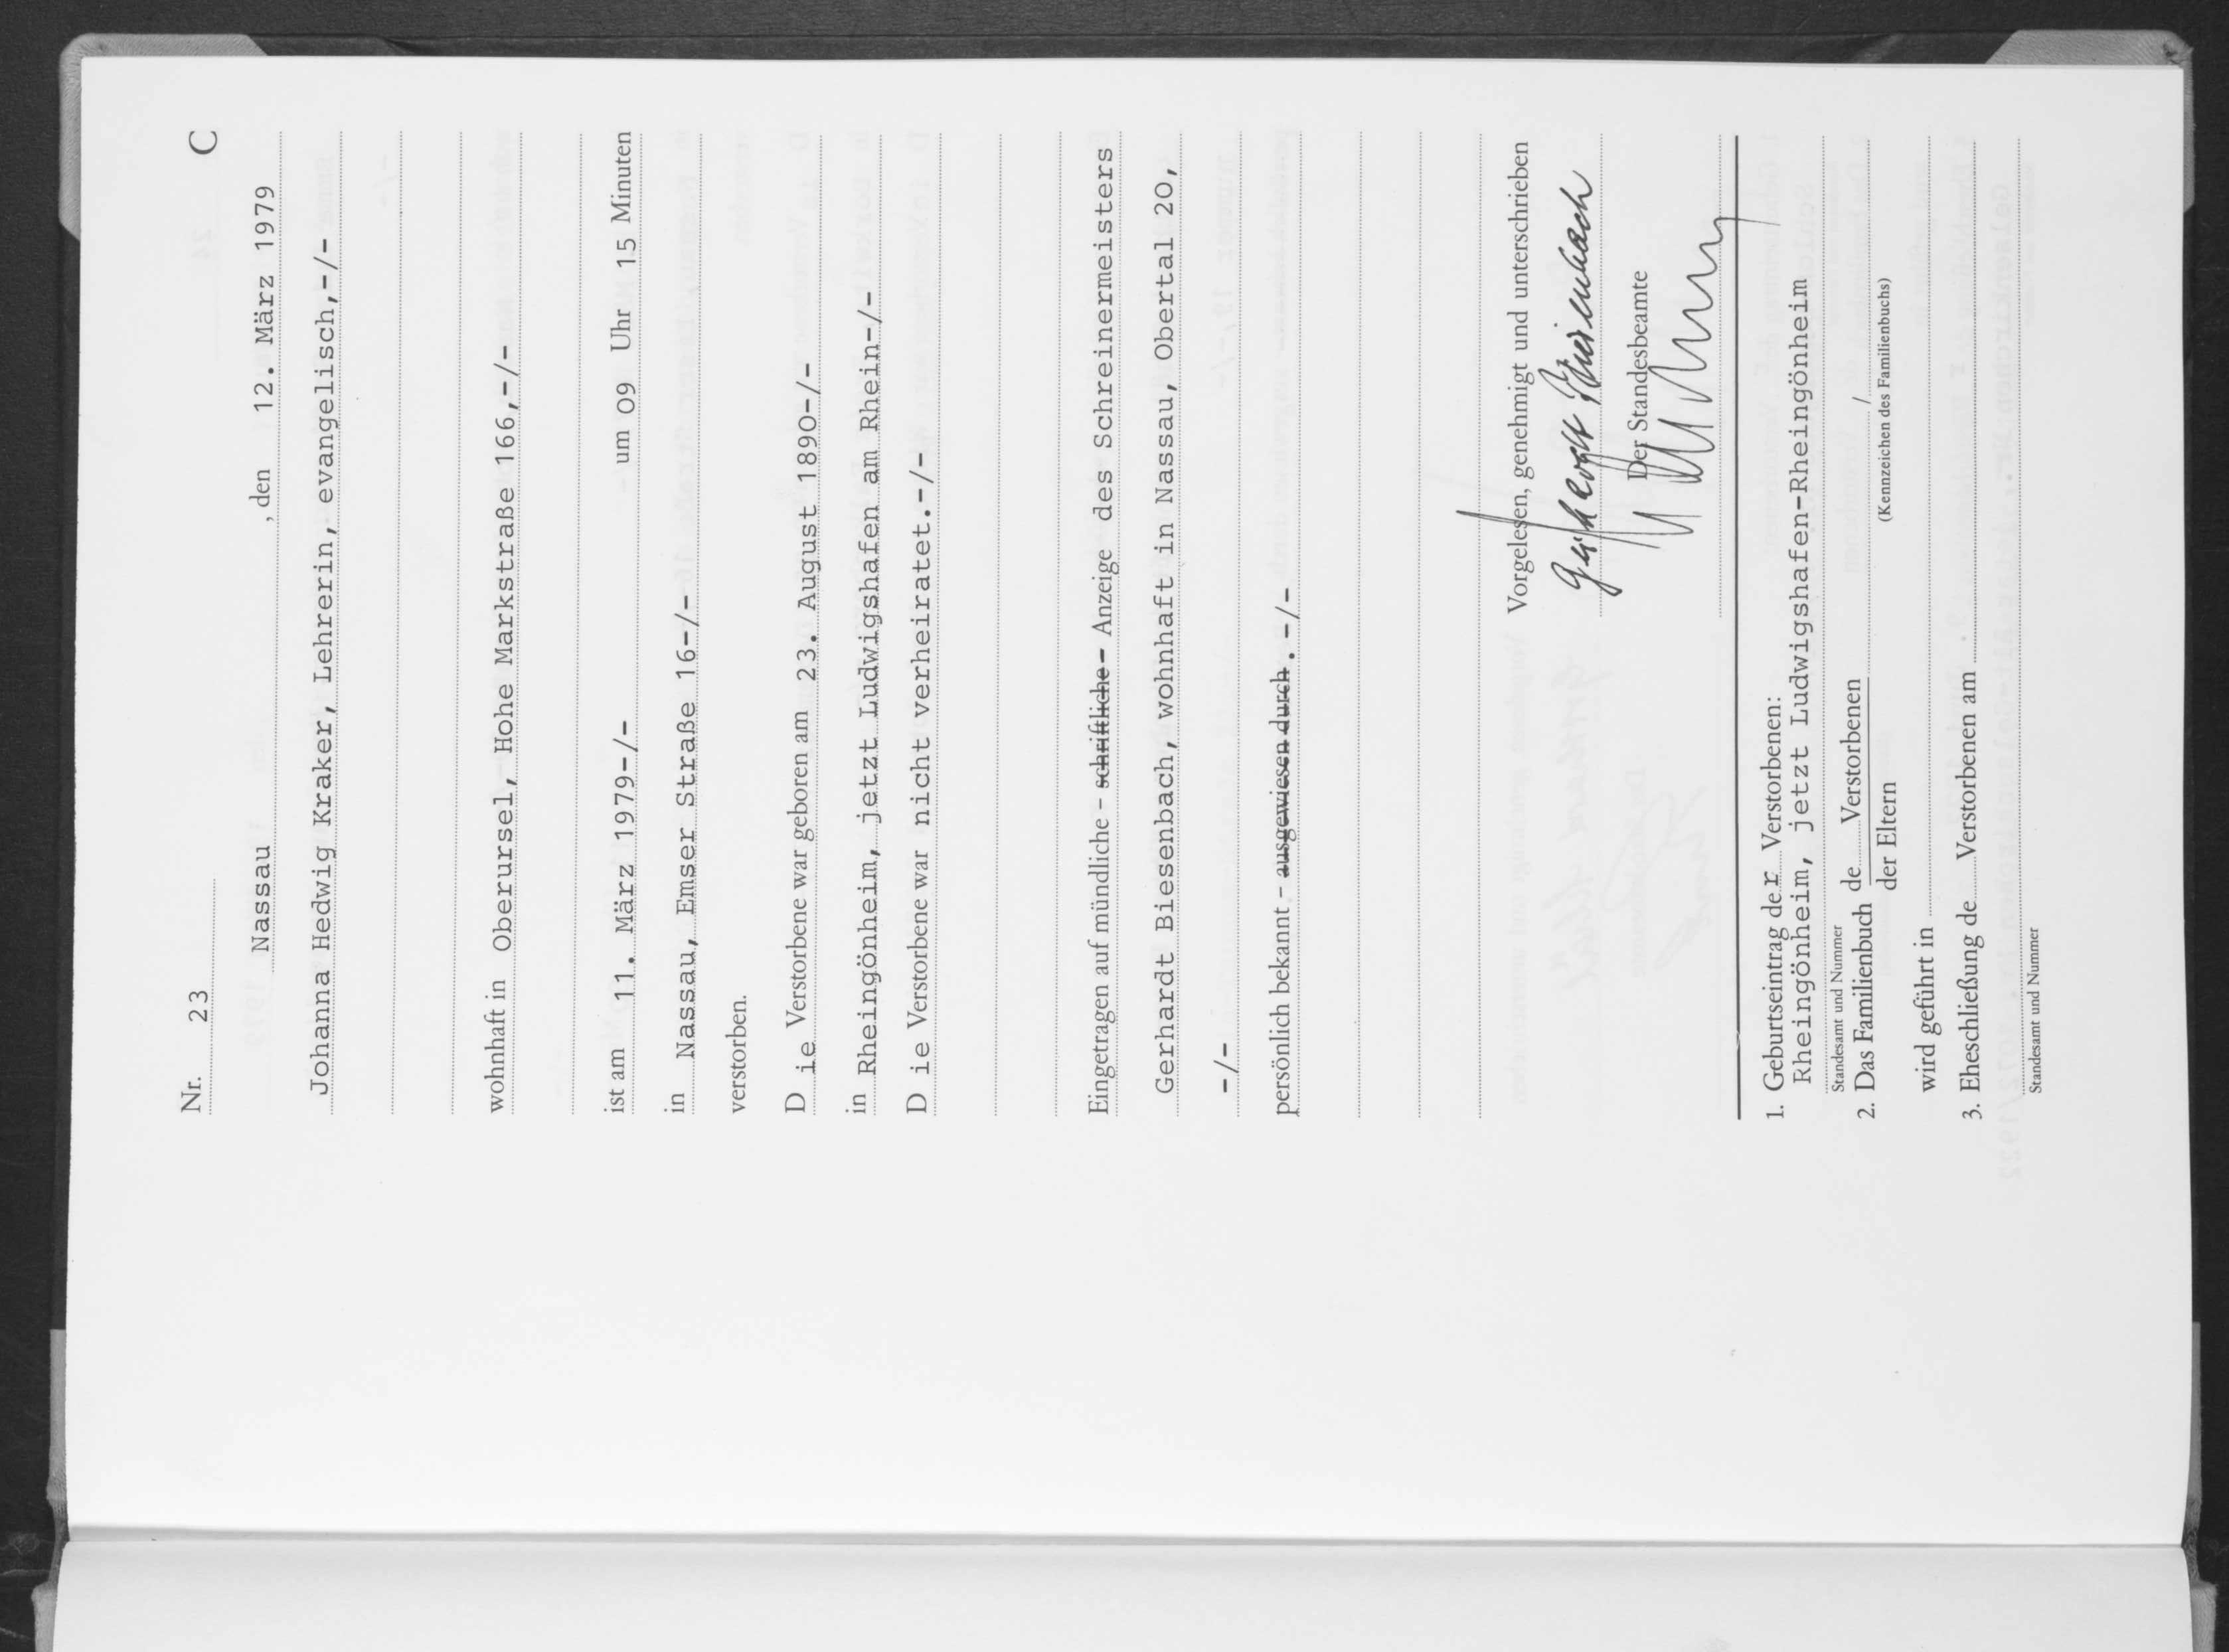 Nr. 23 C
Nassau, den 12. März 1979
Johanna Hedwig Kraker, Lehrerin, evangelisch,-/-
wohnhaft in Oberursel, Hohe Markstraße 166,-/-
ist am 11. März 1979-/- um 09 Uhr 15 Minuten
in Nassau, Emser Straße 16-/-
verstorben.
D ie Verstorbene war geboren am 23. August 1890-/-
in Rheingönheim, jetzt Ludwigshafen am Rhein-/-
D ie Verstorbene war nicht verheiratet.-/-
Eingetragen auf mündliche - schriftliche - Anzeige des Schreinermeisters
Gerhardt Biesenbach, wohnhaft in Nassau, Obertal 20,
-/-
persönlich bekannt - ausgewiesen durch. -/-
Vorgelesen, genehmigt und unterschrieben
Gerhardt Biesenbach
Der Standesbeamte
1. Geburtseintrag der Verstorbenen:
Rheingönheim, jetzt Ludwigshafen-Rheingönheim
Standesamt und Nummer
2. Das Familienbuch de Verstorbenen /
der Eltern (Kennzeichen des Familienbuchs)
wird geführt in
3. Eheschließung de Verstorbenen am
Standesamt und Nummer